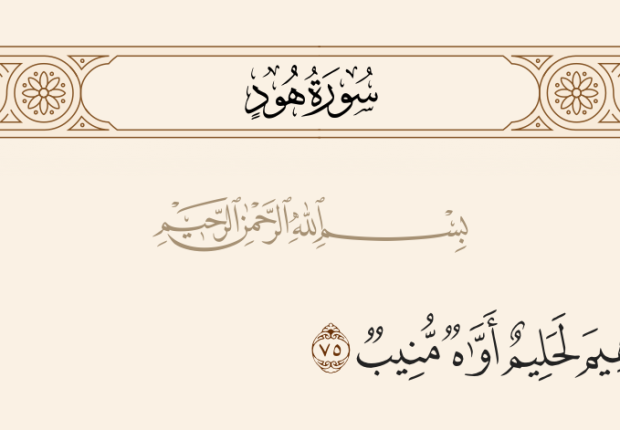 سُورَةُ هُودٍ
بِسْمِ ٱللَّهِ ٱلرَّحْمَٰنِ ٱلرَّحِيمِ
هِيمَ لَحَلِيمٌ أَوَّٰهٌ مُّنِيبٌ ٧٥